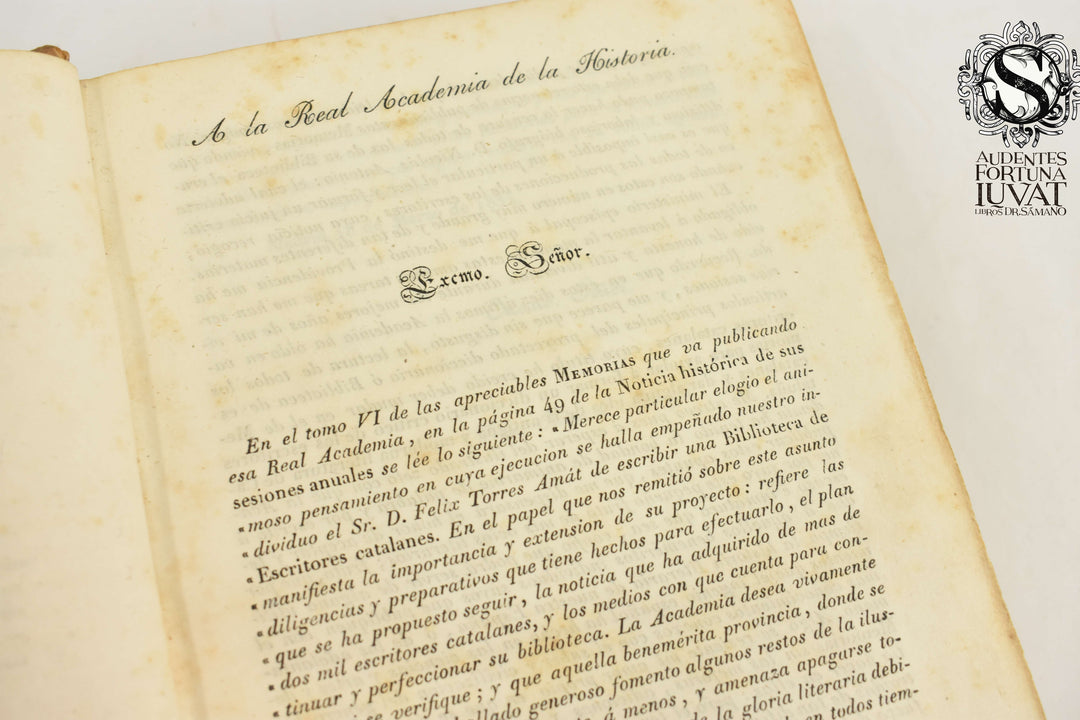 A la Real Academia de la Historia.
Excmo. Señor.
En el tomo VI de las apreciables MEMORIAS que va publicando
esa Real Academia, en la página 49 de la Noticia histórica de sus
sesiones anuales se lée lo siguiente: «Merece particular elogio el ani-
«moso pensamiento en cuya ejecucion se halla empeñado nuestro in-
«dividuo el Sr. D. Felix Torres Amát de escribir una Biblioteca de
«Escritores catalanes. En el papel que nos remitió sobre este asunto
«manifiesta la importancia y extension de su proyecto: refiere las
«diligencias y preparativos que tiene hechos para efectuarlo, el plan
«que se ha propuesto seguir, la noticia que ha adquirido de mas de
«dos mil escritores catalanes, y los medios con que cuenta para con-
«tinuar y perfeccionar su biblioteca. La Academia desea vivamente
se verifique; y que aquella benemérita provincia, donde se
generoso fomento algunos restos de la ilus-
á menos, y amenaza apagarse to-
de la gloria literaria debi-
en todos tiem-
S
AUDENTES
FORTUNA
IUVAT
LIBROS DR. SÁMANO